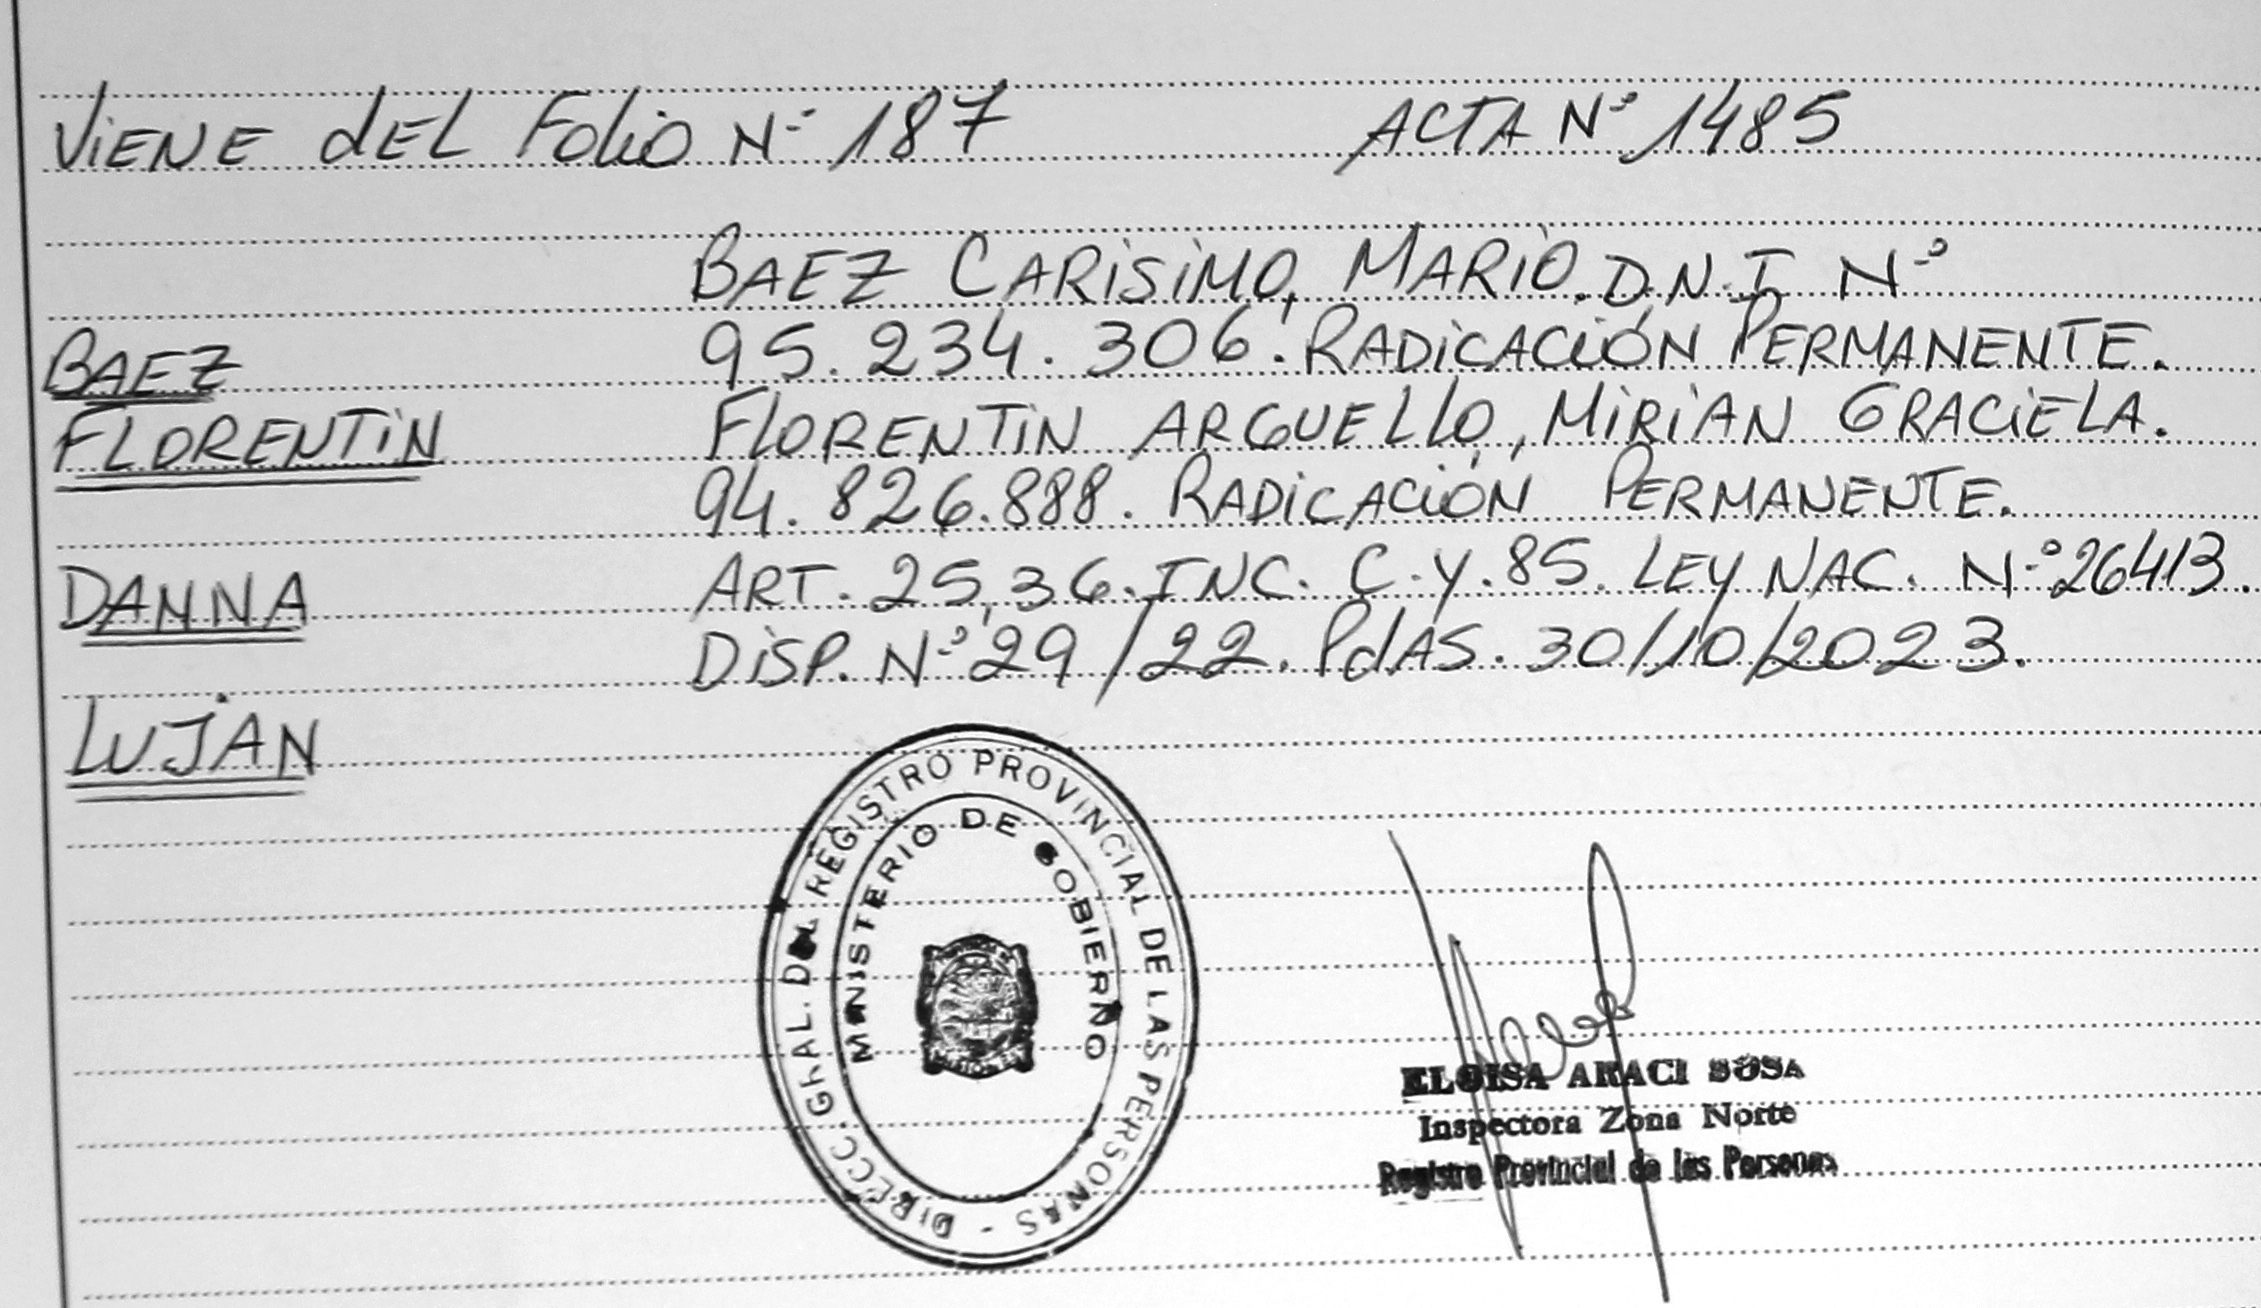 ViENE dEL FOLiO N° 187 ACTA N° 1485
BAEZ CARiSiMO, MARiO. D.N.I N°
BAEZ 95.234.306. RADiCACiÓN PERMANENTE.
FLORENTiN FLORENTiN ARGUELLO, MiRiAN GRACiELA.
94.826.888. RADiCACiÓN PERMANENTE.
DANNA ART. 25,36. INC. C.y.85. LEy NAC. N° 26413.
DiSP. N° 29/22. PdAS. 30/10/2023.
LUJAN
DIRECC. GRAL. DEL REGISTRO PROVINCIAL DE LAS PERSONAS -
MINISTERIO DE GOBIERNO
ELOISA ARACI SOSA
Inspectora Zona Norte
Registro Provincial de las Personas